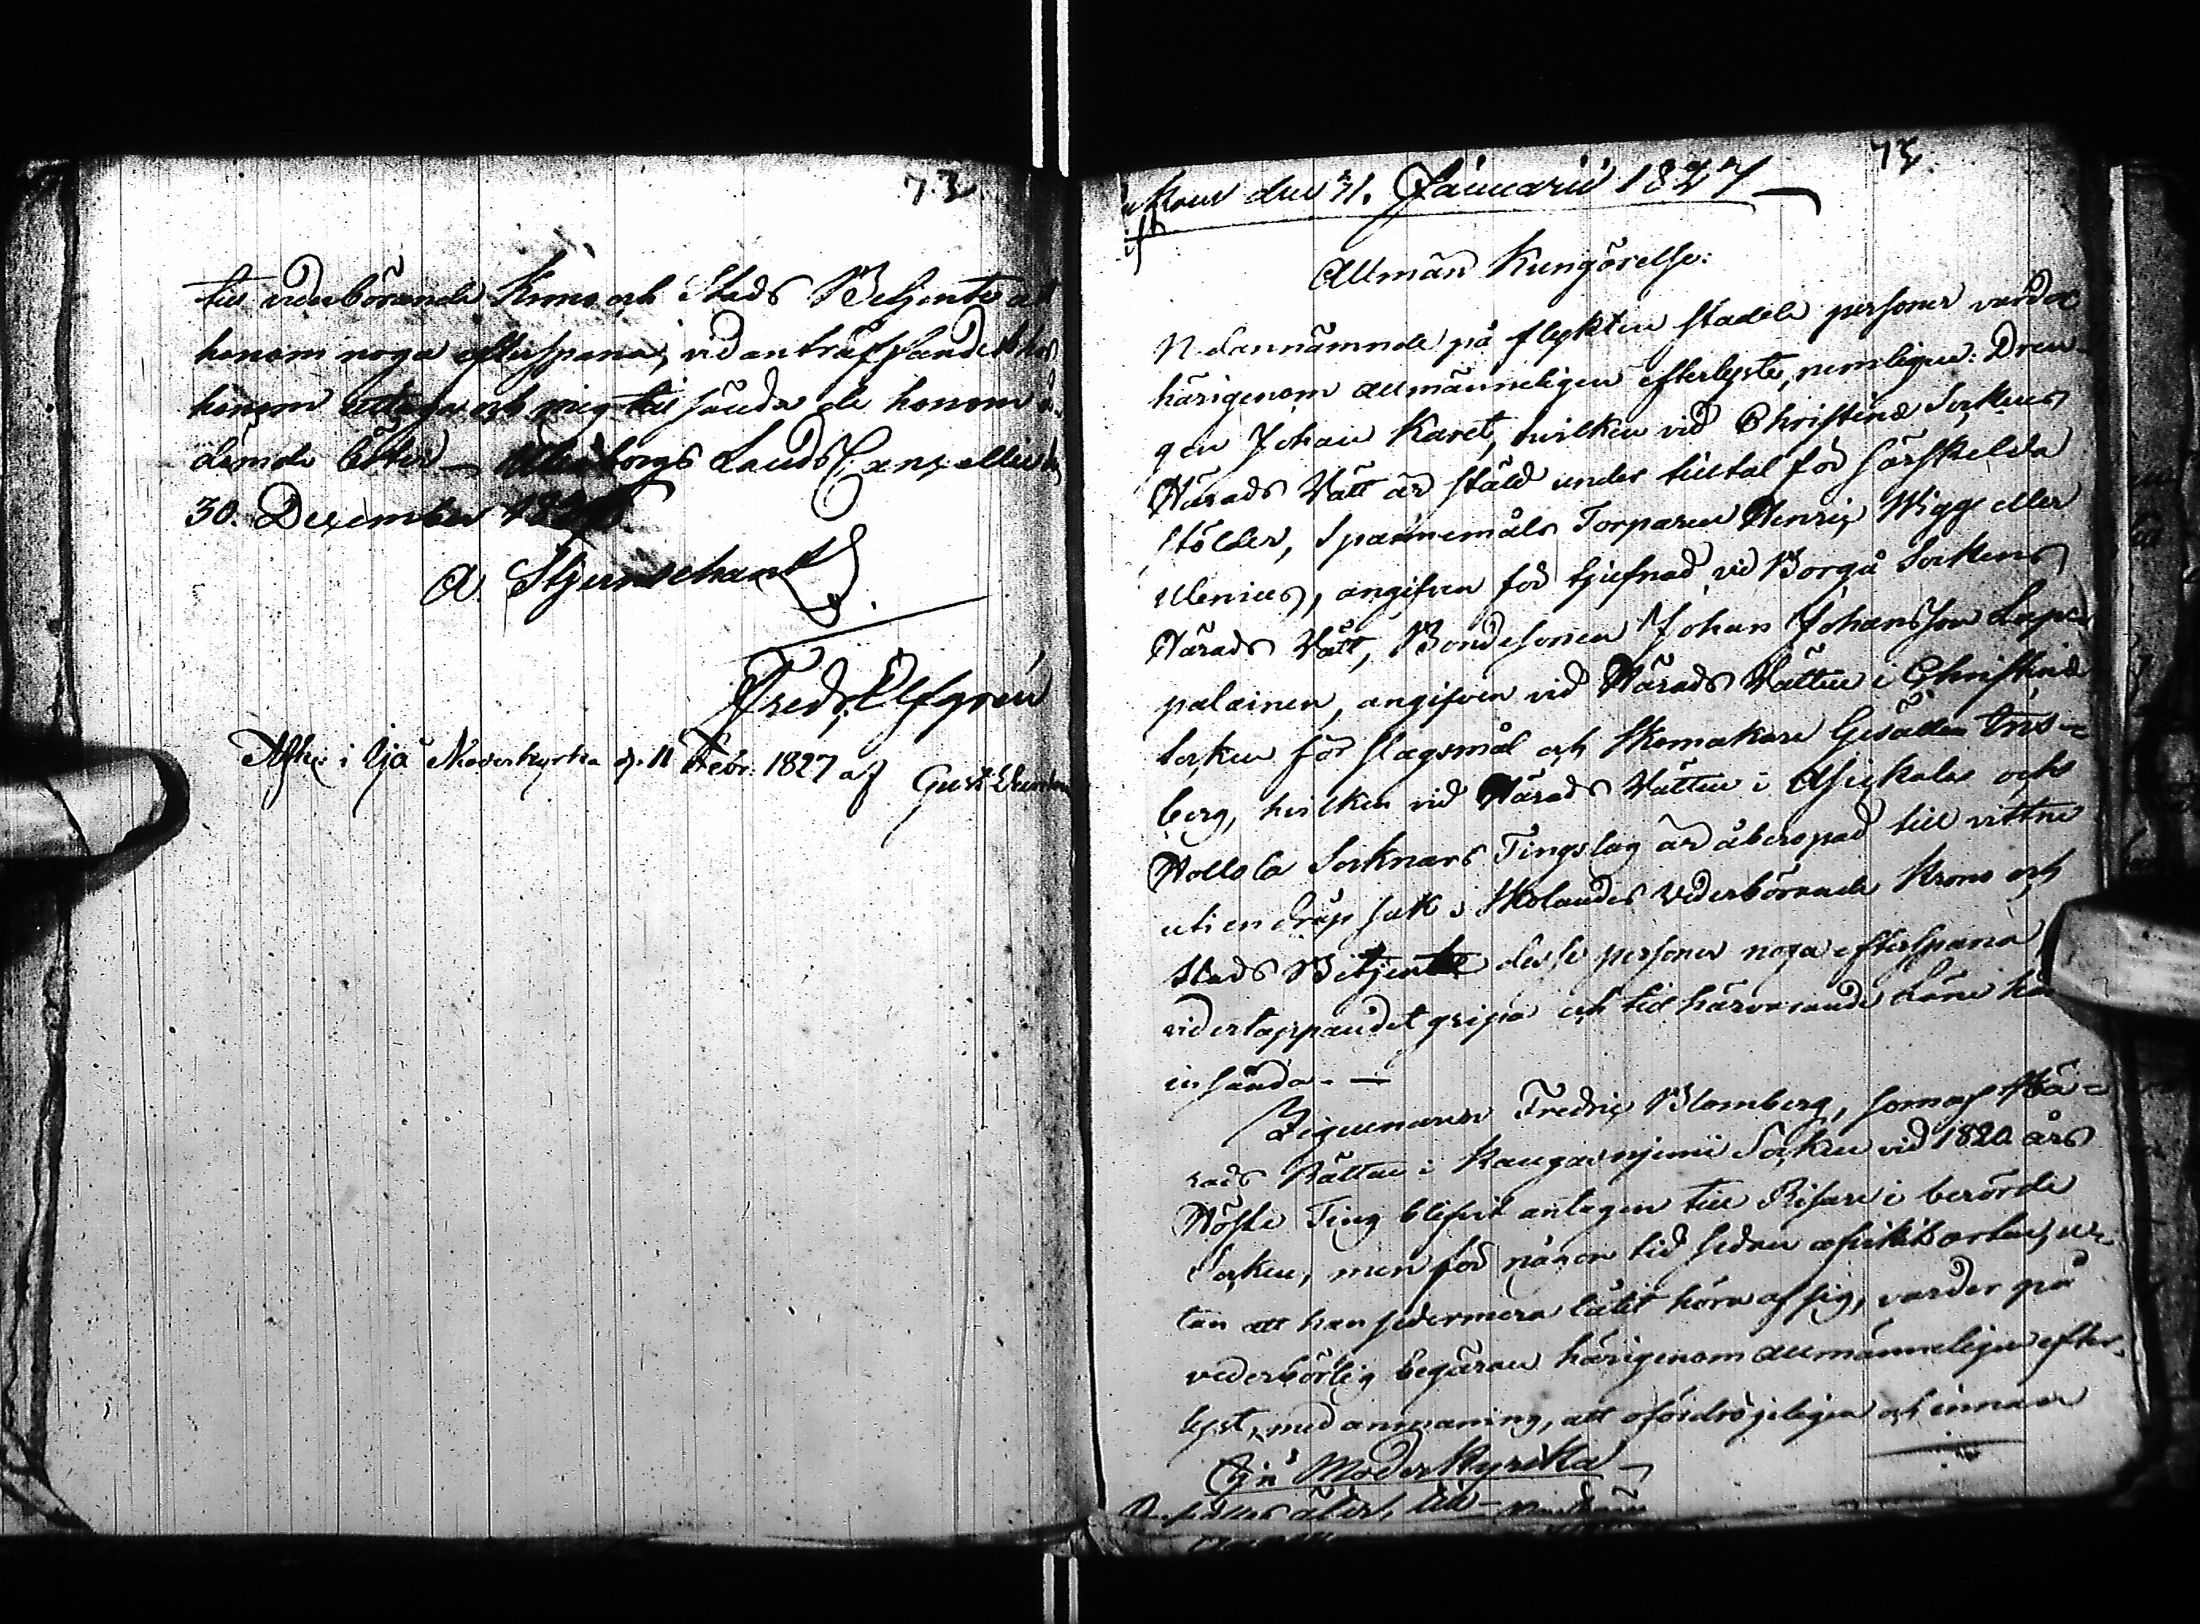 73
till vederbörande Krono och Stads Betjente att
honom noga efterspana, vid anträffandet hos
honom och mig till sända de honom å
dömde böter
30. December
A. Stjernschantz
Fredr. Elfgren
i Ijo Moderkyrka d. 11 Febr: 1827 af Gust
73
den 31. Januarii 1827
Allmän Kungörelse:
Nedannämnde på flyktten stadde personer varda
härigenom allmänneligen efterlyste, nemligen: Dren-
gen Johan Karet, hvilken vid Christinæ Sockens
Härads Rätt är stäld under tilltal för särskelda
stölder, Spannemåls Torparen Henric Wigg eller
Ulenius, angifven för tjufnad vid Borgå Sockens
Härads Rätt, Bondesonen Johan Johansson Lap-
palainen, angifven vid Härads Rätten i Christinæ
Socken för slagsmål och Skomakare Gesällen
berg, hvilken vid Härads Rätten i Asickala och
Hollola Socknars Tingslag är åberopad till vittne
uti en dråp sak; Skolandes Vederbörande Krono och
Stads Betjente desse personer noga efterspana,
vid ertappandet gripa och till härvarande Läne hä
insända. —
Zigenaren Fredric Blomberg, som af Hä-
rads Rätten i Kangasnjemi Socken vid 1820 års
Höste Ting blifvit antagen till Rifvare i berörde
Socken, men för någon tid sedan afvikit orten, u-
tan att han sedermera låtit höra af sig, varder på
vederbörlig begäran härigenom allmänneligen efter-
lyst, med anmaning, att ofördröjeligen och innan
Ijo Moderkyrka